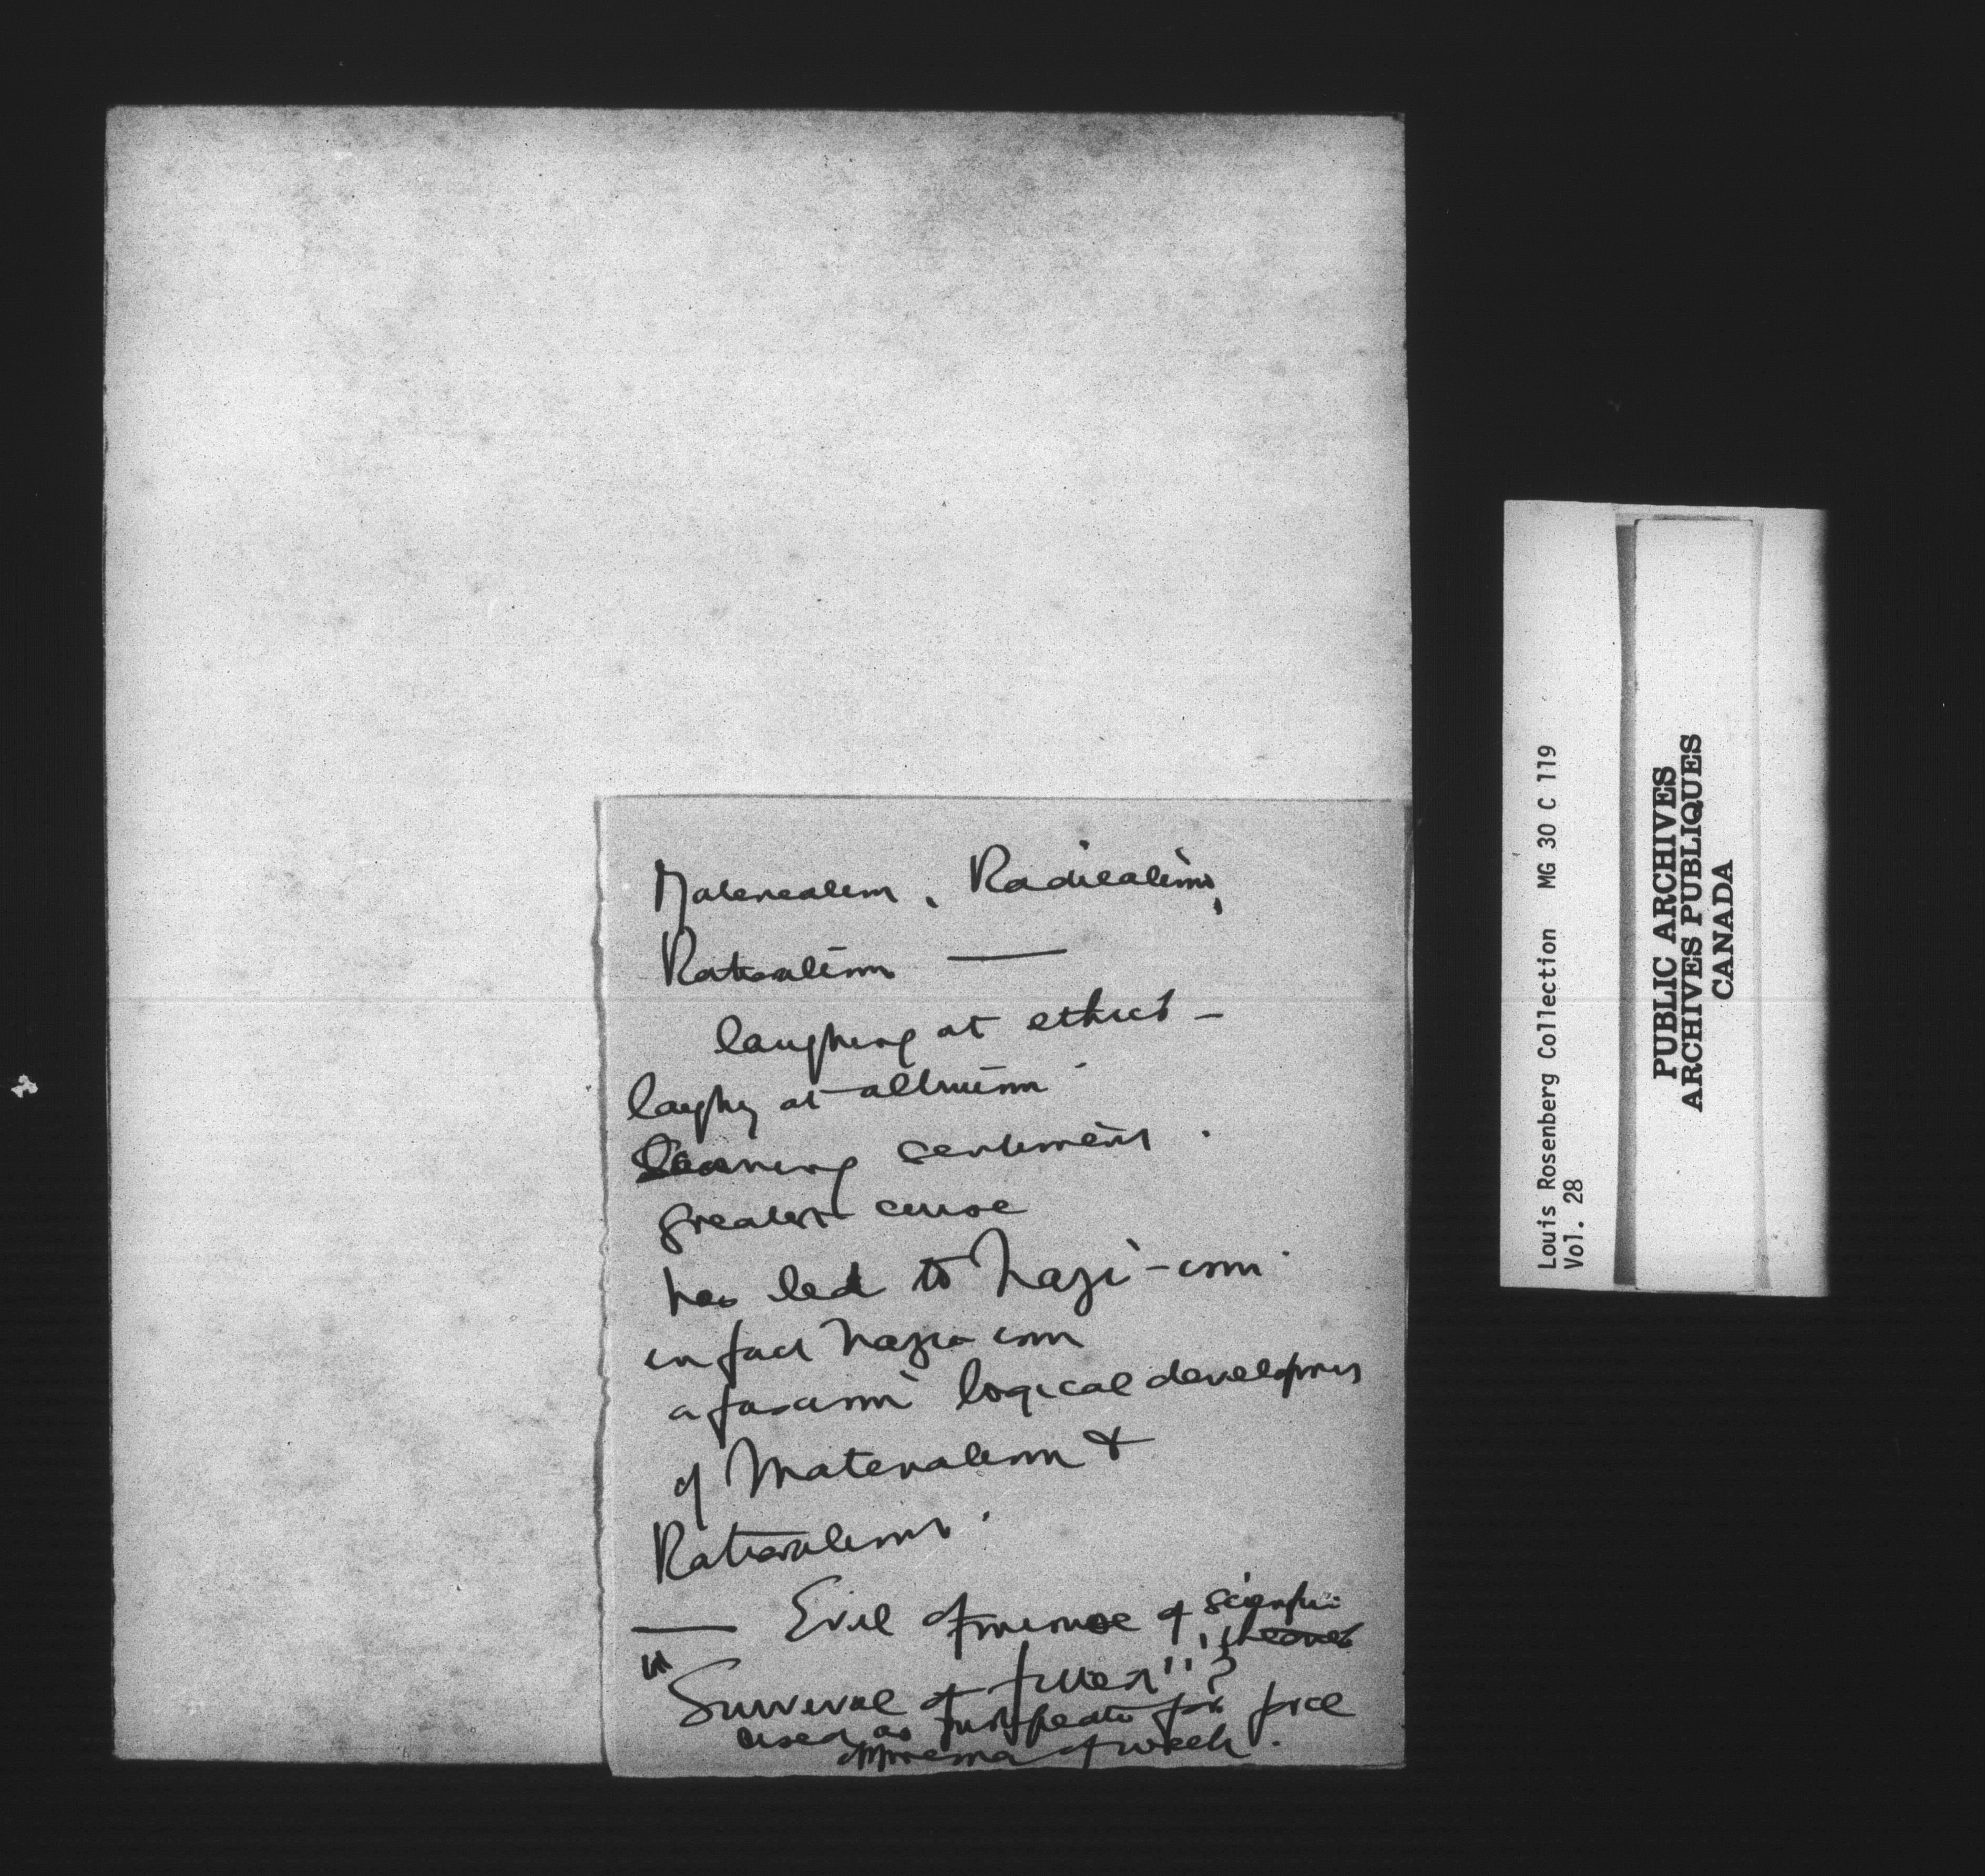 Materialism, Radicalism,
Rationalism —
laughing at ethics —
laughg at altruism
Scorning sentiment.
greatest curse
has led to Nazi-ism.
in fact Nazi-ism
a fascism logical developmen
of Materialism &
Rationalism.
— Evil of misuse of scientific
theories
"Survival of fittest"?
used as justificatn for force
oppression of weak.
Louis Rosenberg Collection MG 30 C 119
Vol. 28
PUBLIC ARCHIVES
ARCHIVES PUBLIQUES
CANADA